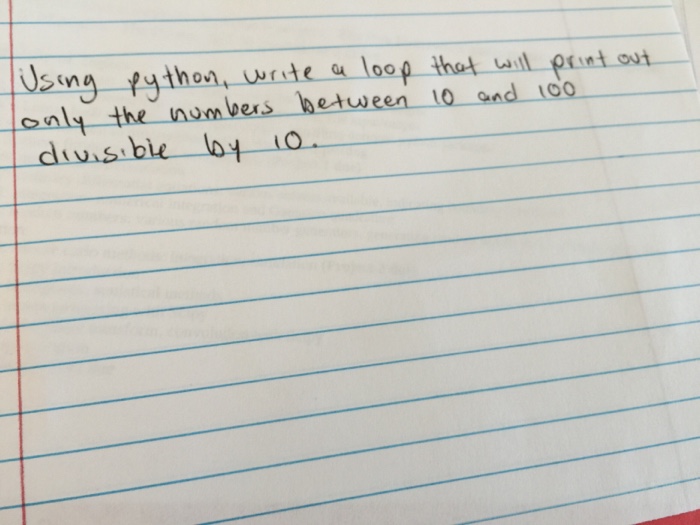 Using python, write a loop that will print out
only the numbers between 10 and 100
divisible by 10.